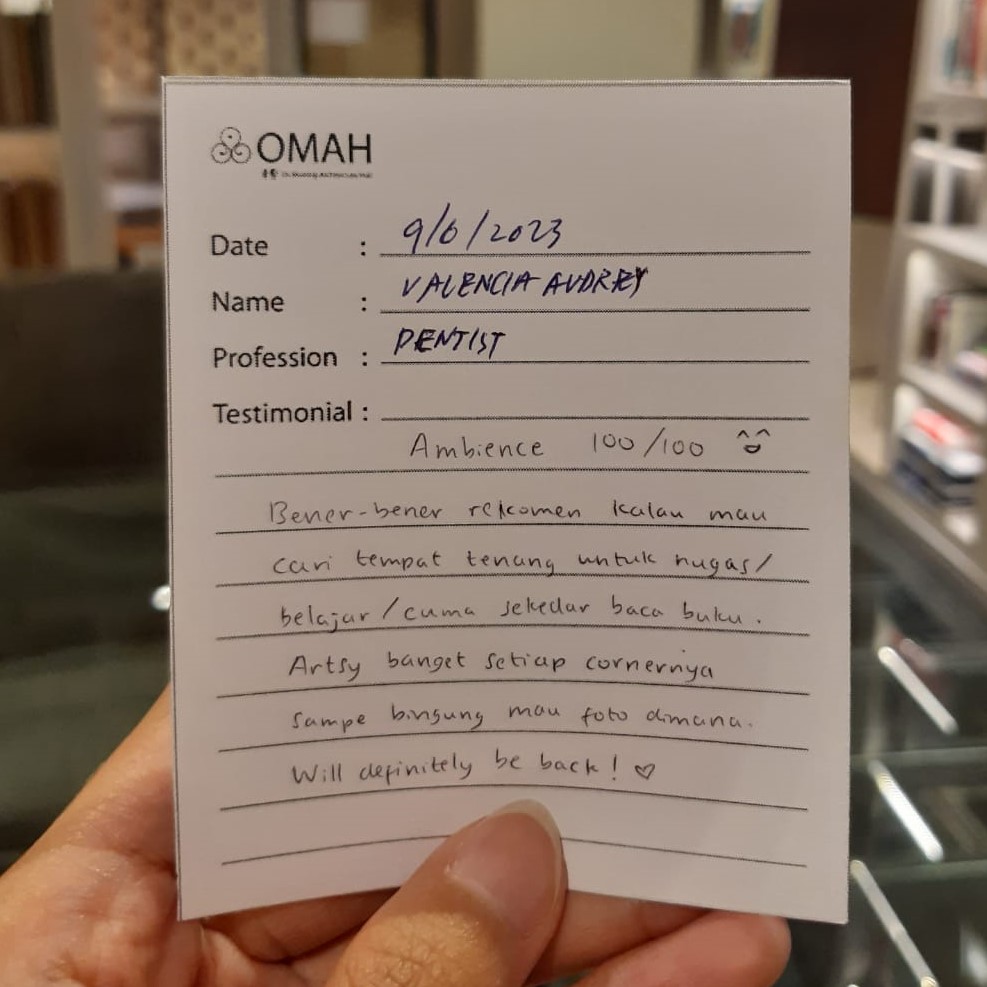 OMAH
Date : 9/6/2023
Name : VALENCIA AUDREY
Profession : DENTIST
Testimonial :
Ambience 100/100
Bener-bener rekomen kalau mau
cari tempat tenang untuk nugas/
belajar/cuma sekedar baca buku.
Artsy banget setiap cornernya
sampe bingung mau foto dimana.
Will definitely be back! ♡